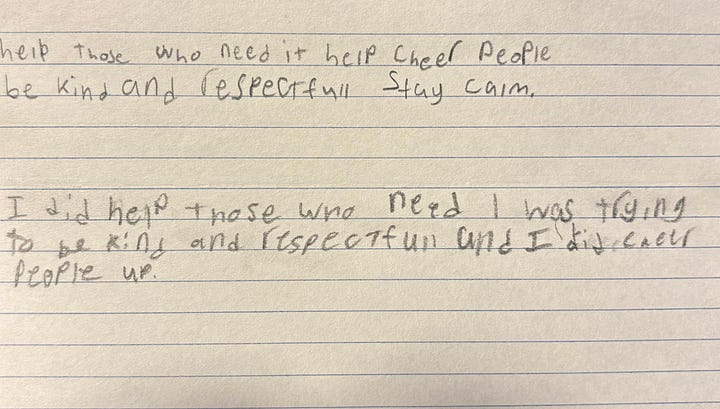 help those who need it help cheer people
be kind and respectfull Stay calm.
I did help those who need I was trying
to be kind and respectfull and I did cheer
people up.